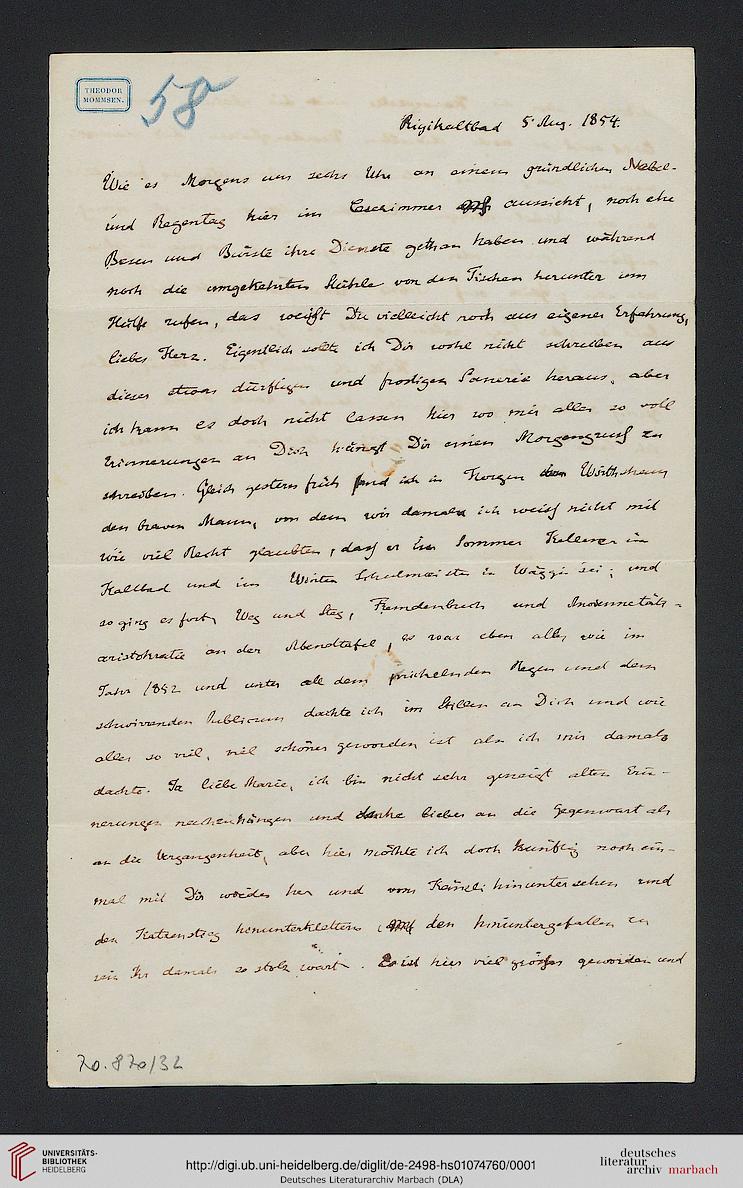 THEODOR
MOMMSEN.
58a
Rigikaltbad 5 Aug. 1854.
Wie es Morgens um sechs Uhr an einem gründlichen Nebel-
und Regentag hier im Lesezimmer aussieht, noch ehe
Besen und Bürste ihre Dienste gethan haben und während
noch die umgekehrten Stühle von den Tischen herunter um
Hülfe rufen, das weißt Du vielleicht noch aus eigener Erfahrung,
liebes Herz. Eigentlich sollte ich Dir wohl nicht schreiben aus
dieser etwas dürftigen und frostigen Scenerie heraus, aber
ich kann es doch nicht lassen hier wo mir alles so voll
Erinnerungen an Dich hängt Dir einen Morgengruß zu
schreiben. Gleich gestern früh fand ich in Horgen im Wirthshaus
den braven Mann, von dem wir damals ich weiß nicht mit
wie viel Recht glaubten, daß er im Sommer Kellner im
Kaltbad und im Winter Schulmeister in Wäggis sei; und
so ging es fort, Weg und Steg, Fremdenbuch und Anciennetäts-
aristokratie an der Abendtafel, es war eben alles wie im
Jahr 1852 und unter all dem prickelnden Regen und dem
schwirrenden Publicum dachte ich im Stillen an Dich und wie
alles so viel, viel schöner geworden ist als ich mir damals
dachte. Ja liebe Marie, ich bin nicht sehr geneigt alten Erin-
nerungen nachzuhängen und denke lieber an die Gegenwart als
an die Vergangenheit, aber hier möchte ich doch künftig noch ein-
mal mit Dir wieder her und vom Känzli hinunter sehen und
den Katzensteg hinunterklettern, den hinuntergefallen zu
sein Ihr damals so stolz wart. Es ist hier viel größer geworden und
70.870/32
UNIVERSITÄTS-
BIBLIOTHEK
HEIDELBERG
http://digi.ub.uni-heidelberg.de/diglit/de-2498-hs01074760/0001
Deutsches Literaturarchiv Marbach (DLA)
deutsches
literatur
archiv marbach